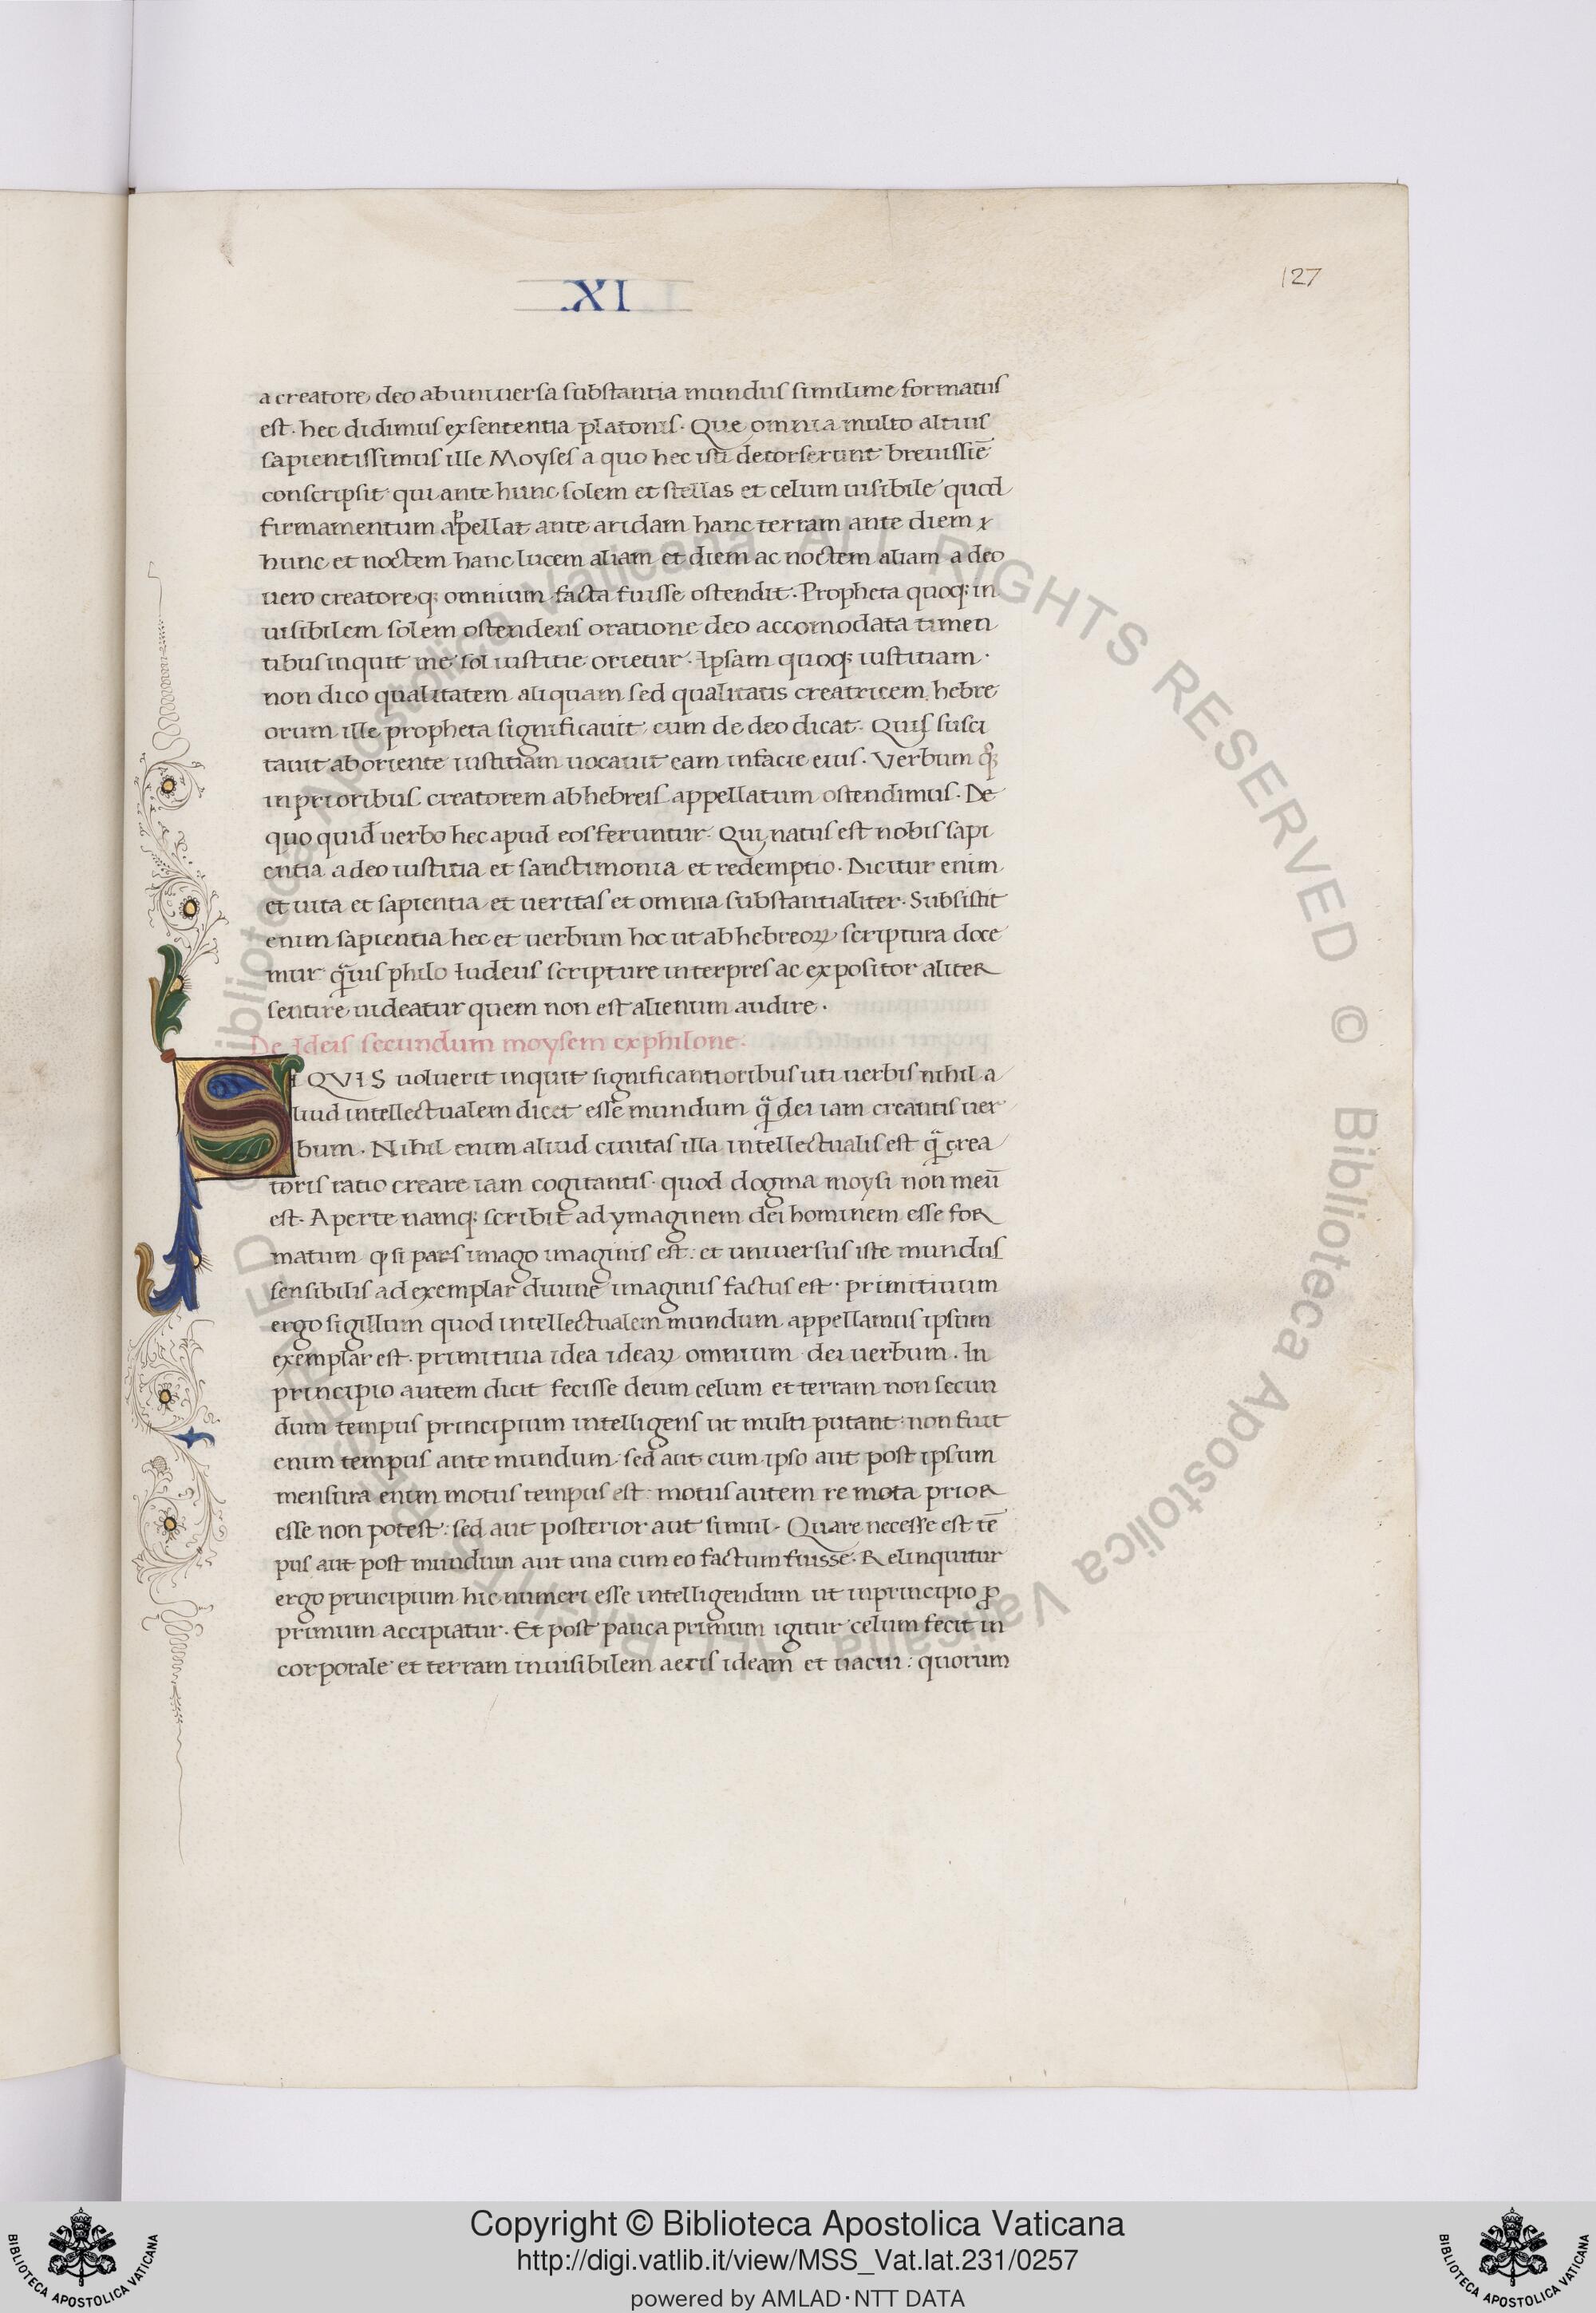 .XI
127
a creatore deo ab uniuersa substantia mundus similime formatus
est. hec didimus ex sententia platonis. Que omnia multo altius
sapientissimus ille Moyses a quo hec isti detorserunt breuissiē
conscripsit qui ante hunc solem et stellas et celum uisibile quod
firmamentum apellat ante aridam hanc terram ante diem
hunc et noctem hanc lucem aliam et diem ac noctem aliam a deo
uero creatoreq; omnium facta fuisse ostendit. Propheta quoq; in
uisibilem solem ostendens oratione deo accomodata timen
tibus inquit me sol iustitie orietur. Ipsam quoq; iustitiam
non dico qualitatem aliquam sed qualitatis creatricem hebre
orum ille propheta significauit cum de deo dicat. Quis susci
tauit ab oriente iustitiam uocauit eam in facie eius. Verbum qq;
in prioribus creatorem ab hebreis appellatum ostendimus. De
quo quid uerbo hec apud eos feruntur. Qui natus est nobis sapi
entia a deo iustitia et sanctimonia et redemptio. Dicitur enim
et uita et sapientia et ueritas et omnia substantialiter. Subsistit
enim sapientia hec et uerbum hoc ut ab hebreoꝝ scriptura doce
mur q̄uis philo Iudeus scripture interpres ac expositor aliter
sentire uideatur quem non est alienum audire.
De Ideis secundum moysem ex philone.
SI QVIS uoluerit inquit significantioribus uti uerbis nihil a
liud intellectualem dicet esse mundum q̄ dei iam creantis uer
bum. Nihil enim aliud ciuitas illa intellectualis est q̄ crea
toris ratio creare iam cogitantis. quod dogma moysi non meū
est. Aperte namq; scribit ad ymaginem dei hominem esse for
matum ꝙ si pars imago imaginis est: et uniuersus iste mundus
sensibilis ad exemplar diuine imaginis factus est. primitiuum
ergo sigillum quod intellectualem mundum appellamus ipsum
exemplar est. primitiua idea ideaꝝ omnium dei uerbum. In
principio autem dicit fecisse deum celum et terram non secun
dum tempus principium intelligens ut multi putant: non fuit
enim tempus ante mundum. sed aut cum ipso aut post ipsum
mensura enim motus tempus est: motus autem re mota prior
esse non potest: sed aut posterior aut simul. Quare necesse est tē
pus aut post mundum aut una cum eo factum fuisse. Relinquitur
ergo principium hic numeri esse intelligendum ut in principio ꝓ
primum accipiatur. Et post pauca primum igitur celum fecit in
corporale et terram inuisibilem aeris ideam et uacui: quorum
Copyright © Biblioteca Apostolica Vaticana
http://digi.vatlib.it/view/MSS_Vat.lat.231/0257
powered by AMLAD·NTT DATA
BIBLIOTECA APOSTOLICA VATICANA
BIBLIOTECA APOSTOLICA VATICANA
© Biblioteca Apostolica Vaticana ALL RIGHTS RESERVED © Biblioteca Apostolica Vaticana ALL RIGHTS RESERVED